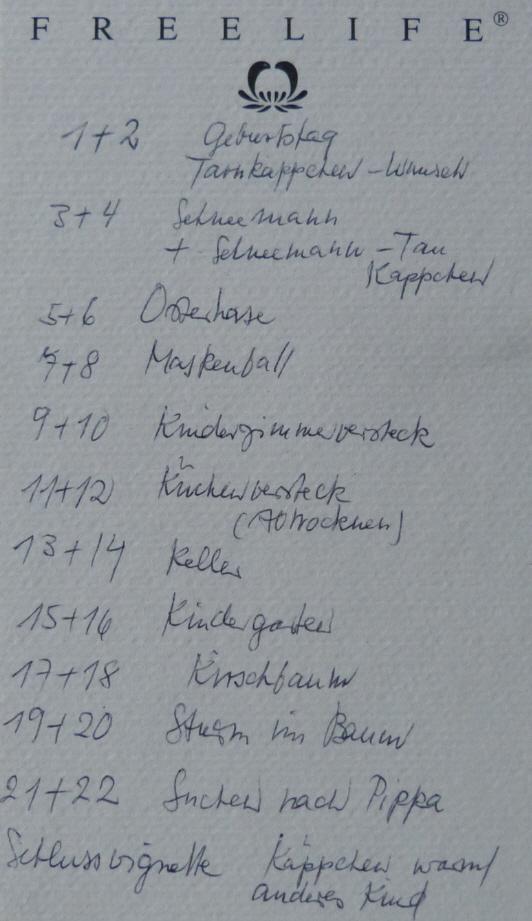 FREELIFE®
1+2 Geburtstag
Tarnkäppchen-Wunsch
3+4 Schneemann
+ Schneemann-Tarn
Käppchen
5+6 Osterhase
7+8 Maskenball
9+10 Kinderzimmerversteck
11+12 Küchenversteck
(Abtrocknen)
13+14 Keller
15+16 Kindergarten
17+18 Kirschbaum
19+20 Sturm im Baum
21+22 Suchen nach Pippa
Schlussvignette Käppchen wärmt
anderes Kind